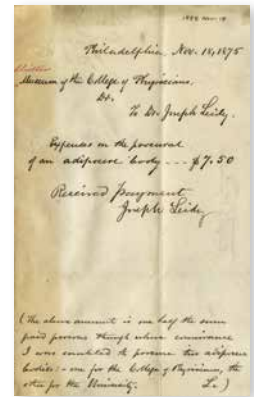 1875 Nov. 18
Philadelphia, Nov. 18, 1875
Mütter
Museum of the College of Physicians,
Dr.
To Dr. Joseph Leidy.
Expenses on the procural
of an adipocere body --- $7.50
Received payment
Joseph Leidy
(The above amount is one half the sum
paid persons through whose connivance
I was enabled to procure two adipocere
bodies:- one for the College of Physicians, the
other for the University. Le.)